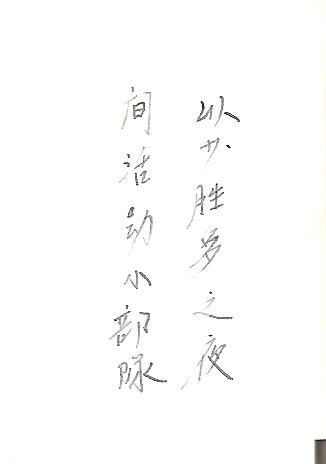 以少胜多之夜
间活动小部队